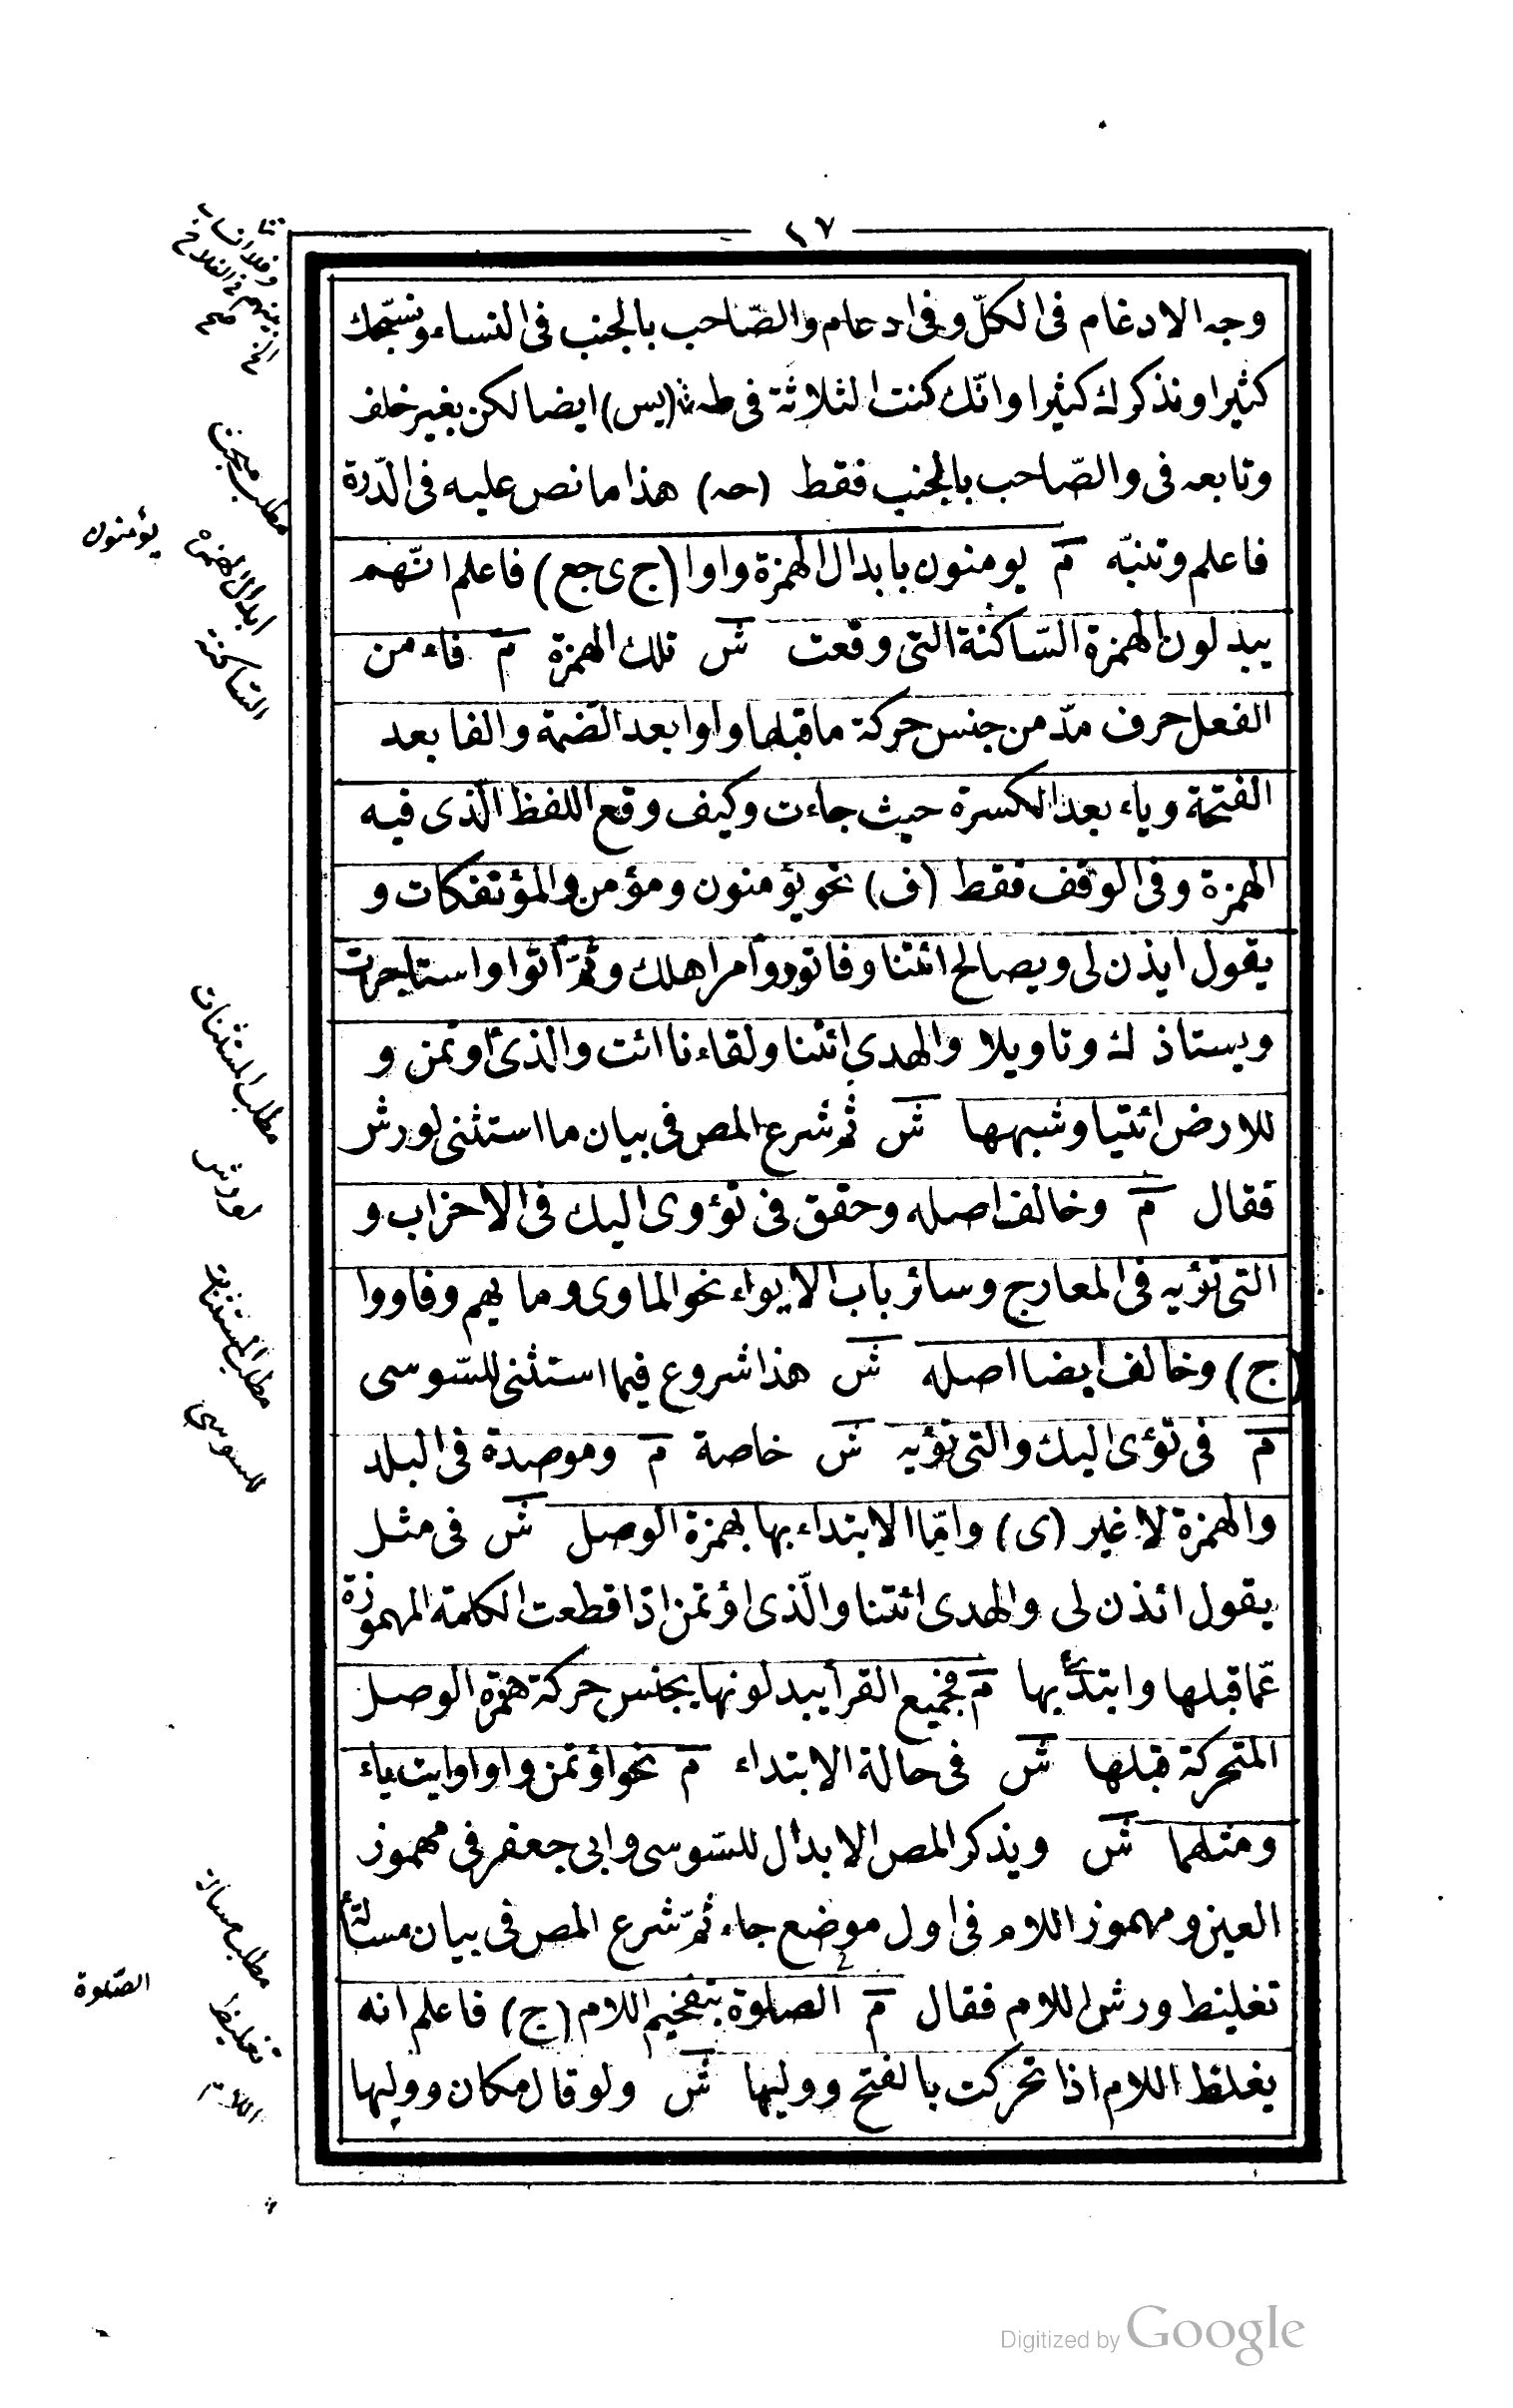 ١٧
وجه الادغام فى الكلّ وفى ادغام والصّاحب بالجنب فى النساء ونسبّحك
كثيرا ونذكرك كثيرا وانّك كنت الثلاثة فى طه (يس) ايضا لكن بغير خلف
وتابعه فى والصّاحب بالجنب فقط (حه) هذا ما نص عليه فى الدّرة
فاعلم وتنبّه م يومنون بابدال الهمزة واوا (ج ى جع) فاعلم انّهم
يبدلون الهمزة السّاكنة التى وقعت ش تلك الهمزة م فاء من
الفعل حرف مدّ من جنس حركة ما قبلها واوا بعد الضّمة والفا بعد
الفتحة وياء بعد الكسرة حيث جاءت وكيف وقع اللفظ الّذى فيه
الهمزة وفى الوقف فقط (ف) نحو يؤمنون ومؤمن والمؤتفكات و
يقول ايذن لى ويصالح ائتنا وفاتوا وأمر اهلك وثمّ أتوا واستاجرت
ويستاذ لك وتاويلا والهدى ائتنا ولقاءنا ائت والذى أوتمن و
للارض ائتيا وشبهها ش ثم شرع المص فى بيان ما استثنى لورش
فقال م وخالف اصله وحقق فى تؤوى اليك فى الاحزاب و
التى تؤيه فى المعارج وسائر باب الايواء نحو الماوى وما يهم وفاووا
(ج) وخالف ايضا اصله ش هذا شروع فيما استثنى للسّوسى
م فى تؤى اليك والتى تؤيه ش خاصة م وموصدة فى البلد
والهمزة لا غير (ى) وامّا الابتداء بها بهمزة الوصل ش فى مثل
يقول ائذن لى والهدى ائتنا والّذى اؤتمن اذا قطعت الكلمة المهموزة
عمّا قبلها وابتدئ بها م فجميع القرأ يبدلونها بجنس حركة همزة الوصل
المتحركة قبلها ش فى حالة الابتداء م نحو اؤتمن واوا وايت ياء
ومثلهما ش ويذكر المص الابدال للسّوسى وابى جعفر فى مهموز
العين ومهموز اللام فى اول موضع جاء ثمّ شرع المص فى بيان مسألة
تغليظ ورش اللام فقال م الصلوة بتفخيم اللام (ج) فاعلم انه
يغلظ اللام اذا تحركت بالفتح ووليها ش ولو قال مكان ووليها
مطلب مبحث
ابدال الهمزه
السّاكنة
يؤمنون
مطلب المستثنيات
لورش
مطلب المستثنيات
للسوسى
مطلب مسألة
تغليظ
اللام
الصّلوة
Digitized by Google